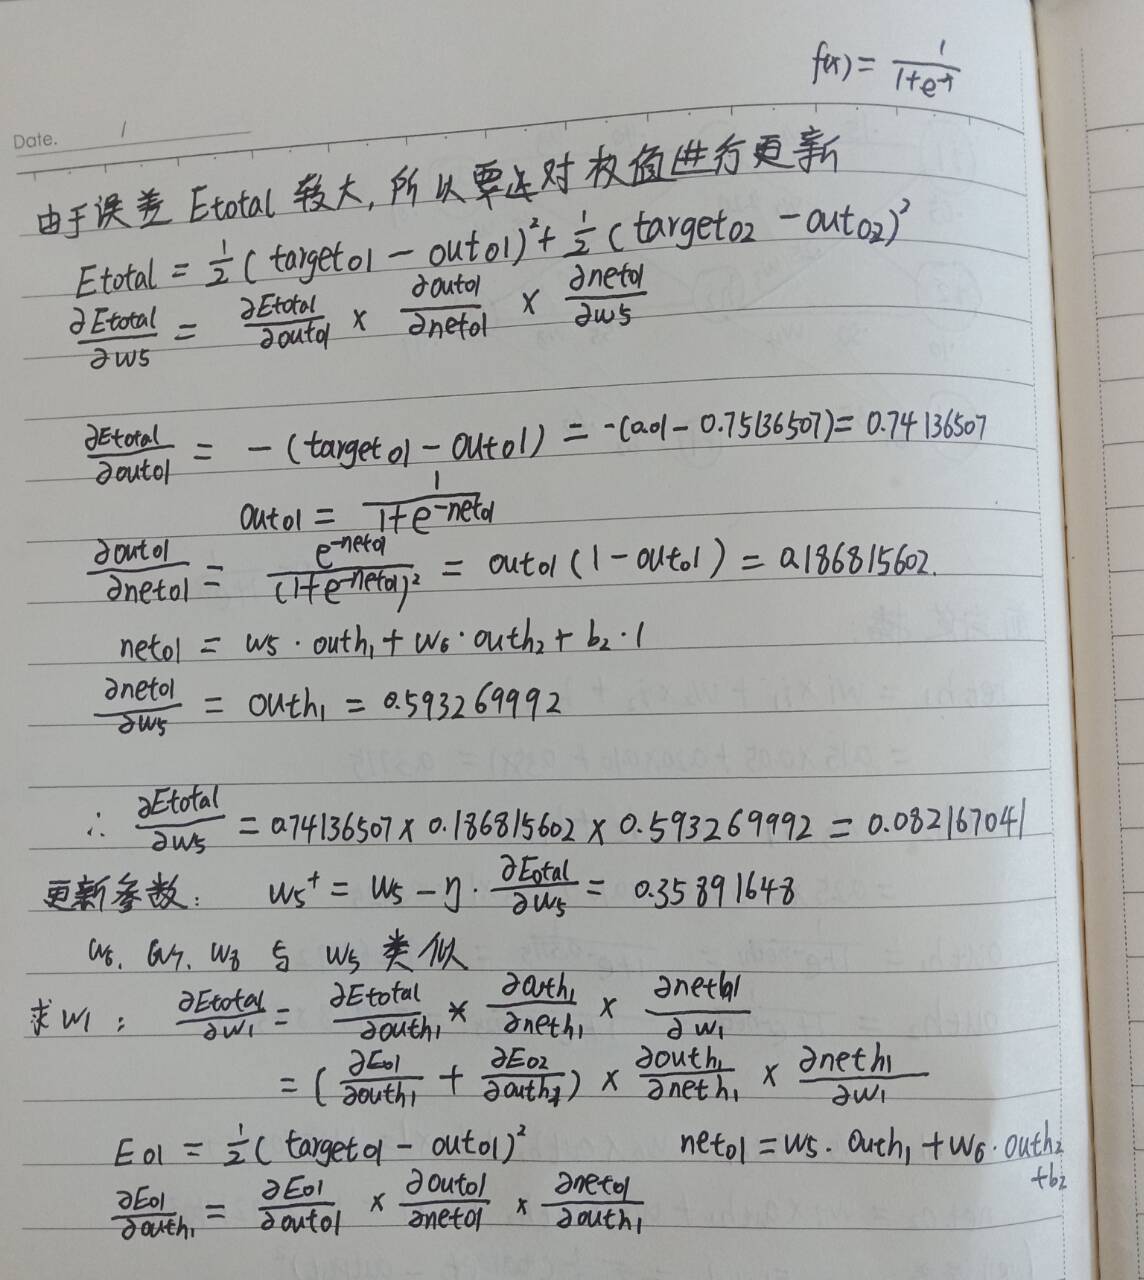 f(x) = 1/(1+e^-x)
Date. /
由于误差 Etotal 较大,所以要对权值进行更新
Etotal = 1/2(targeto1 - outo1)² + 1/2(targeto2 - outo2)²
∂Etotal/∂w5 = ∂Etotal/∂outo1 × ∂outo1/∂neto1 × ∂neto1/∂w5
∂Etotal/∂outo1 = -(targeto1 - outo1) = -(0.01 - 0.75136507) = 0.74136507
outo1 = 1/(1+e^-neto1)
∂outo1/∂neto1 = e^-neto1/(1+e^-neto1)² = outo1(1 - outo1) = 0.186815602.
neto1 = w5 · outh₁ + w6 · outh₂ + b₂ · 1
∂neto1/∂w5 = outh₁ = 0.593269992
∴ ∂Etotal/∂w5 = 0.74136507 × 0.186815602 × 0.593269992 = 0.082167041
更新参数: w5⁺ = w5 - η · ∂Etotal/∂w5 = 0.35891648
w6. w7. w8 与 w5 类似
求 w1: ∂Etotal/∂w1 = ∂Etotal/∂outh₁ × ∂outh₁/∂neth₁ × ∂neth1/∂w₁
= (∂Eo1/∂outh₁ + ∂Eo2/∂outh₁) × ∂outh₁/∂neth₁ × ∂neth1/∂w₁
Eo1 = 1/2(targeto1 - outo1)² neto1 = w5 · outh₁ + w6 · outh₂ + b₂
∂Eo1/∂outh₁ = ∂Eo1/∂outo1 × ∂outo1/∂neto1 × ∂neto1/∂outh₁